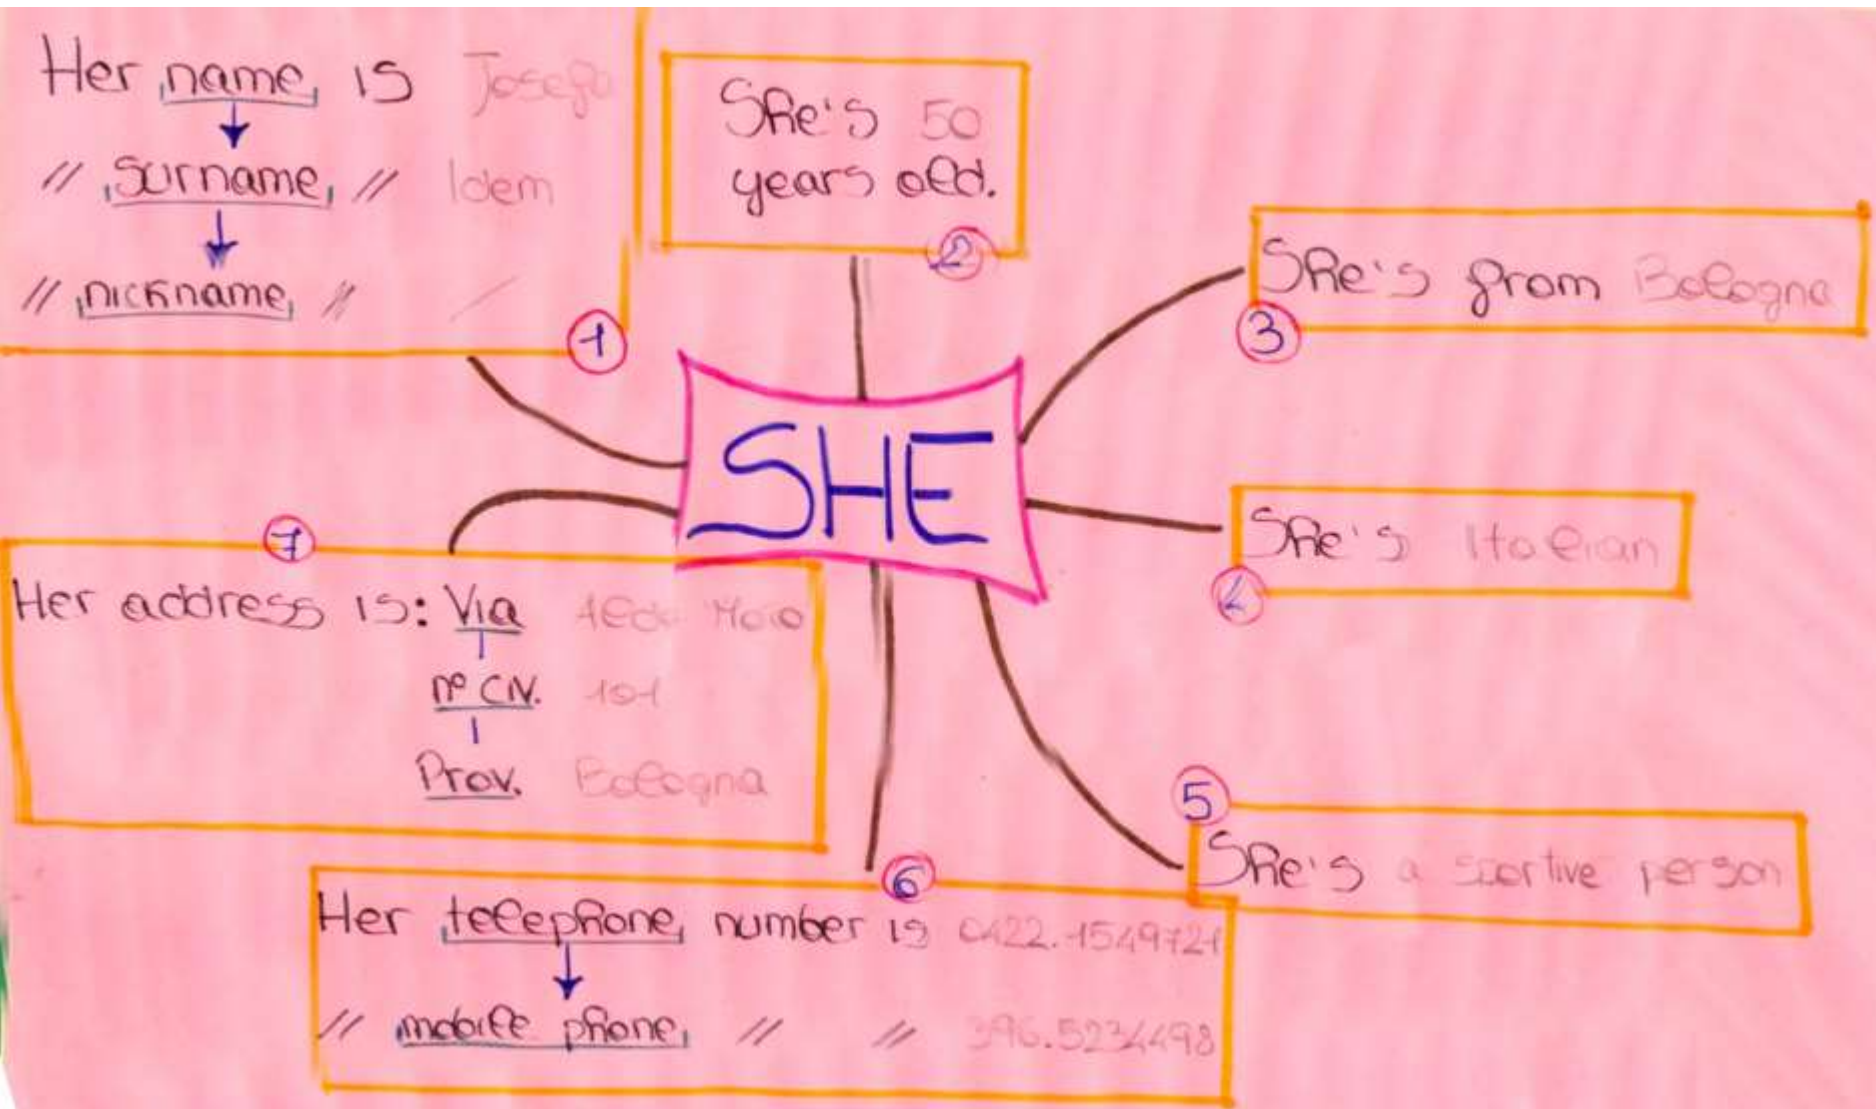 Her name is Josefa
// surname // Idem
// nickname // /
1
She's 50
years old.
2
She's from Bologna
3
She's Italian
4
5
She's a sportive person
6
Her telephone number is 0422.1549721
// mobile phone // // 396.5234498
7
Her address is: Via Aldo Moro
n° CIV. 101
Prov. Bologna
SHE